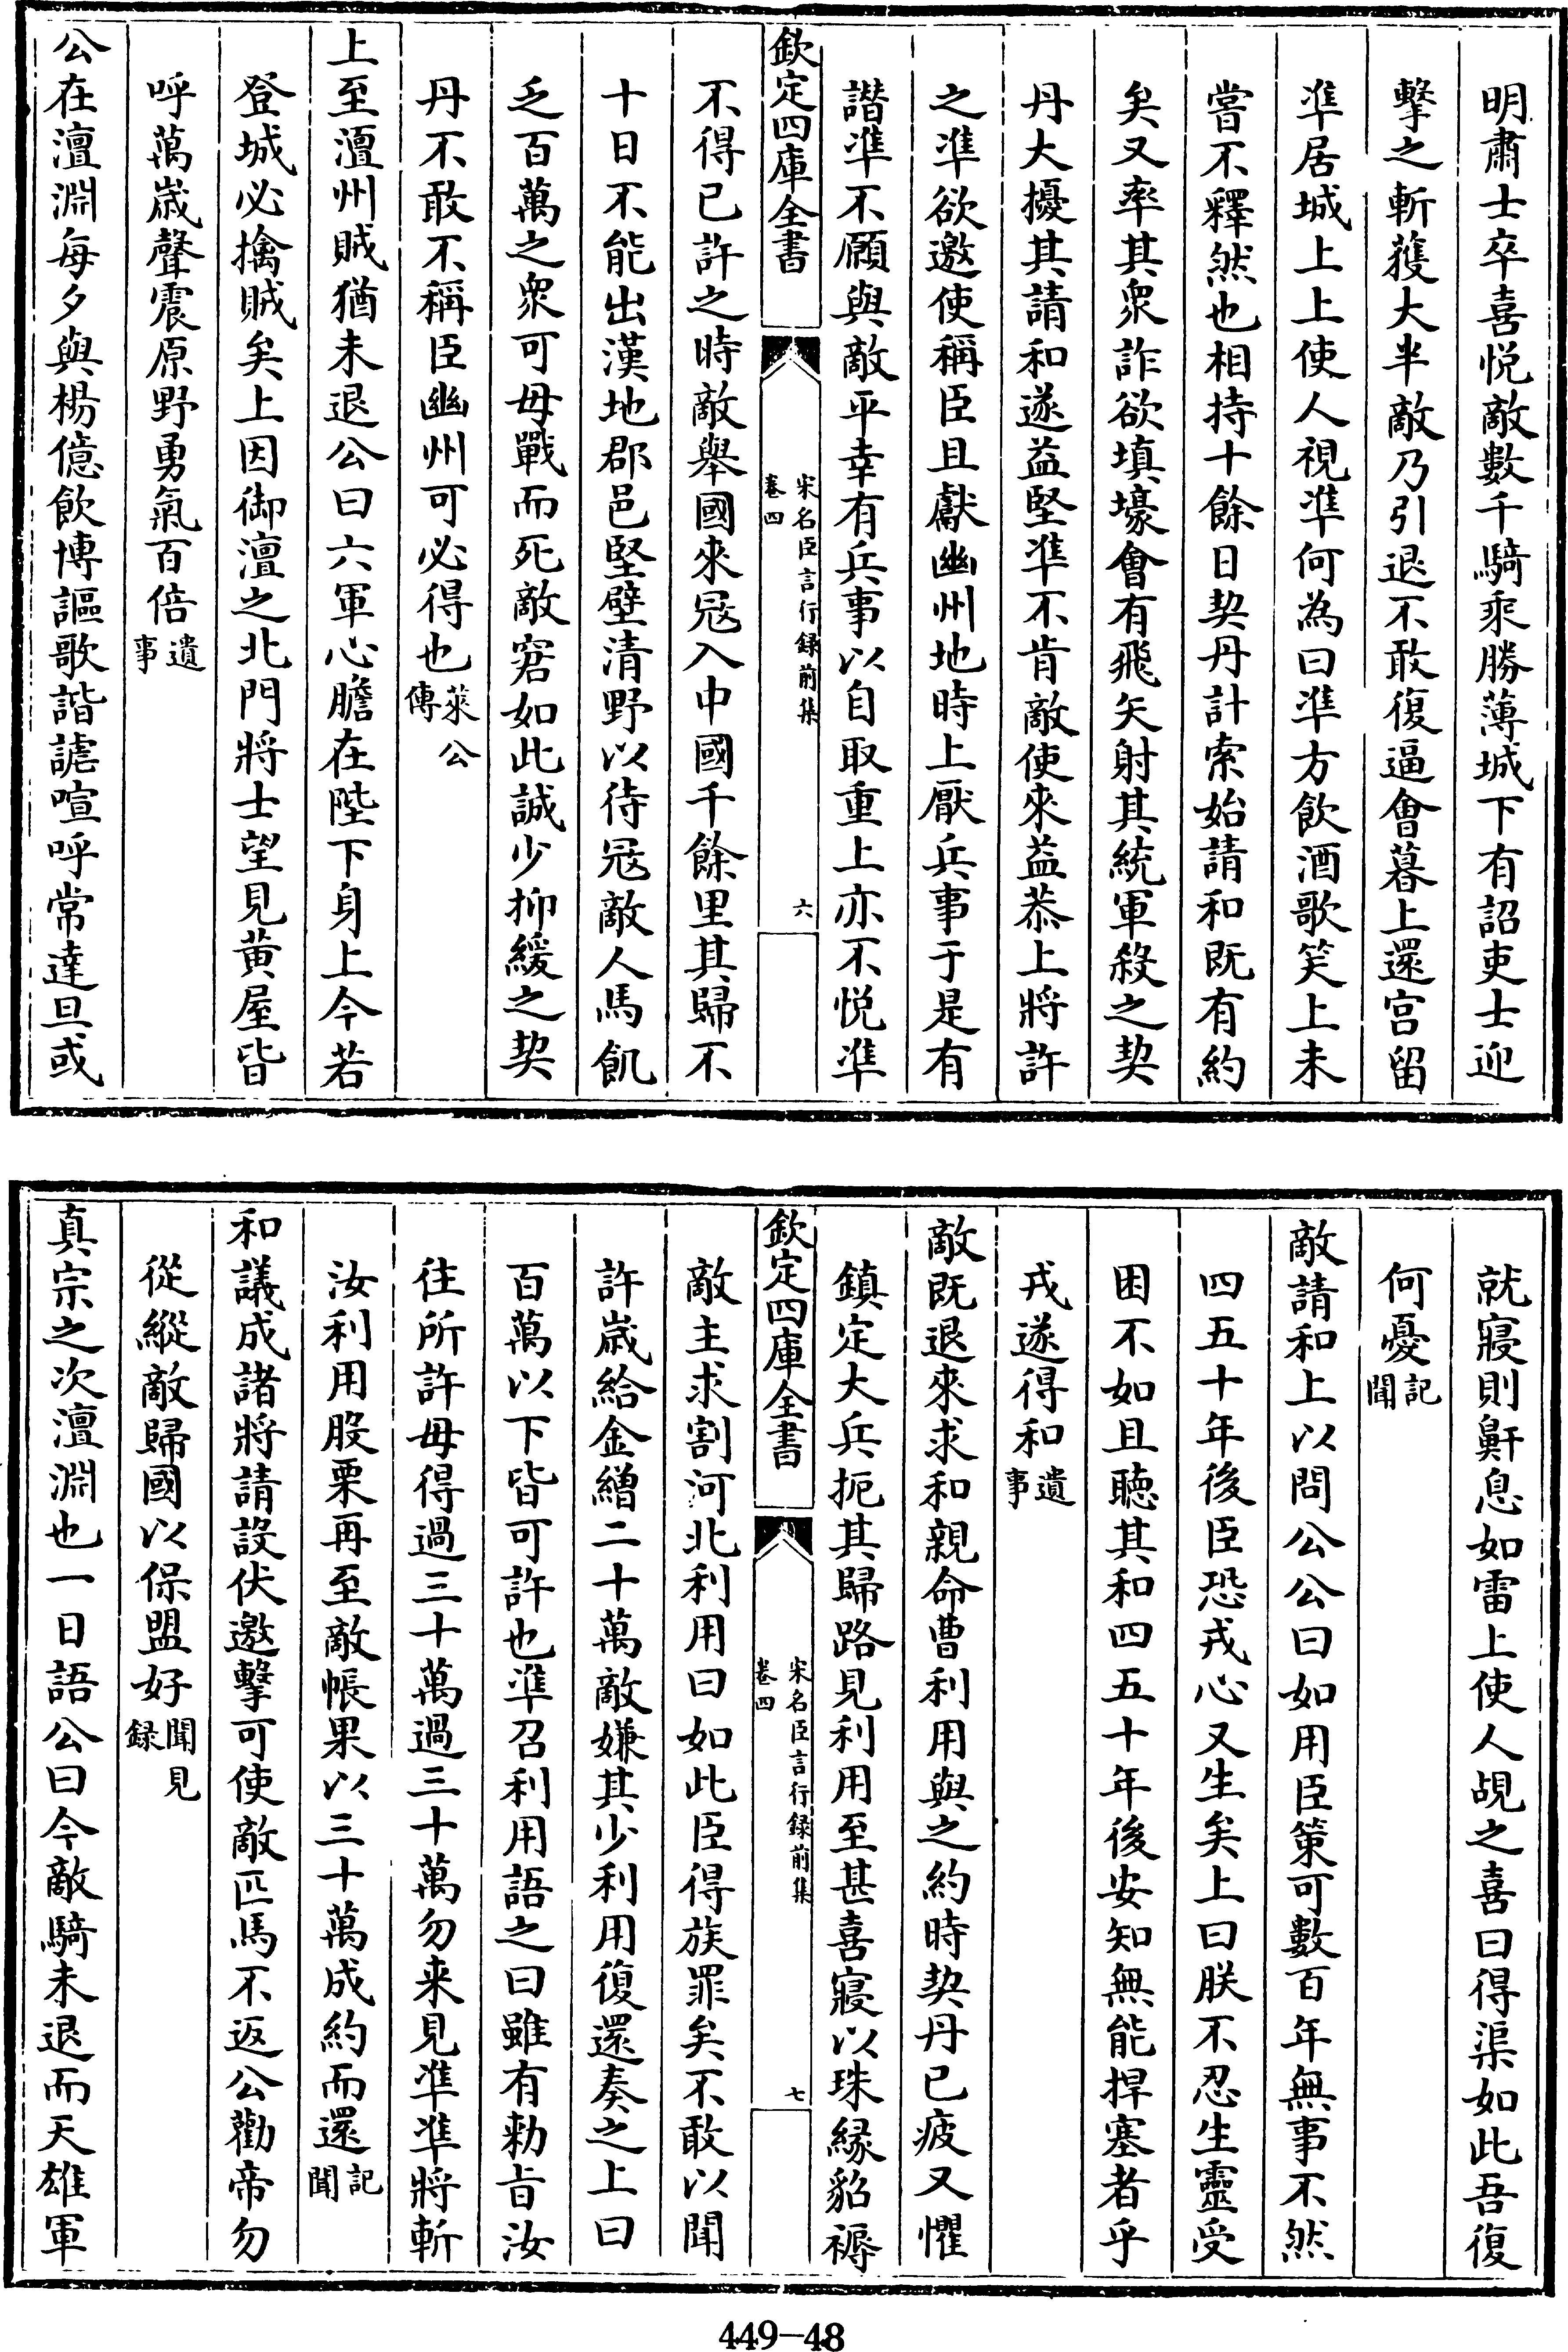 明肅士卒喜悦敵數千騎乘勝薄城下有詔吏士迎
擊之斬獲大半敵乃引退不敢復逼會暮上還宮留
凖居城上上使人視凖何為曰凖方飲酒歌笑上未
嘗不釋然也相持十餘日契丹計索始請和既有約
矣又率其衆詐欲填壕會有飛矢射其統軍殺之契
丹大擾其請和遂益堅凖不肯敵使來益恭上將許
之凖欲邀使稱臣且獻幽州地時上厭兵事于是有
譖凖不願與敵平幸有兵事以自取重上亦不悦凖
欽定四庫全書
宋名臣言行録前集
卷四
六
不得已許之時敵舉國來冦入中國千餘里其歸不
十日不能出漢地郡邑堅壁清野以待冦敵人馬飢
乏百萬之衆可毋戰而死敵窘如此誠少抑緩之契
丹不敢不稱臣幽州可必得也萊公傳
上至澶州賊猶未退公曰六軍心膽在陛下身上今若
登城必擒賊矣上因御澶之北門將士望見黄屋皆
呼萬歲聲震原野勇氣百倍遺事
公在澶淵每夕與楊億飲博謳歌諧謔喧呼常達旦或
就寢則鼾息如雷上使人覘之喜曰得渠如此吾復
何憂記聞
敵請和上以問公公曰如用臣策可數百年無事不然
四五十年後臣恐戎心又生矣上曰朕不忍生靈受
困不如且聽其和四五十年後安知無能捍塞者乎
戎遂得和遺事
敵既退來求和親命曹利用與之約時契丹已疲又懼
鎮定大兵扼其歸路見利用至甚喜寢以珠緣貂褥
欽定四庫全書
宋名臣言行録前集
卷四
七
敵主求割河北利用曰如此臣得族罪矣不敢以聞
許歲給金繒二十萬敵嫌其少利用復還奏之上曰
百萬以下皆可許也凖召利用語之曰雖有勅旨汝
往所許毋得過三十萬過三十萬勿來見凖凖將斬
汝利用股栗再至敵帳果以三十萬成約而還記聞
和議成諸將請設伏邀擊可使敵匹馬不返公勸帝勿
從縱敵歸國以保盟好聞見録
真宗之次澶淵也一日語公曰今敵騎未退而天雄軍
449-48